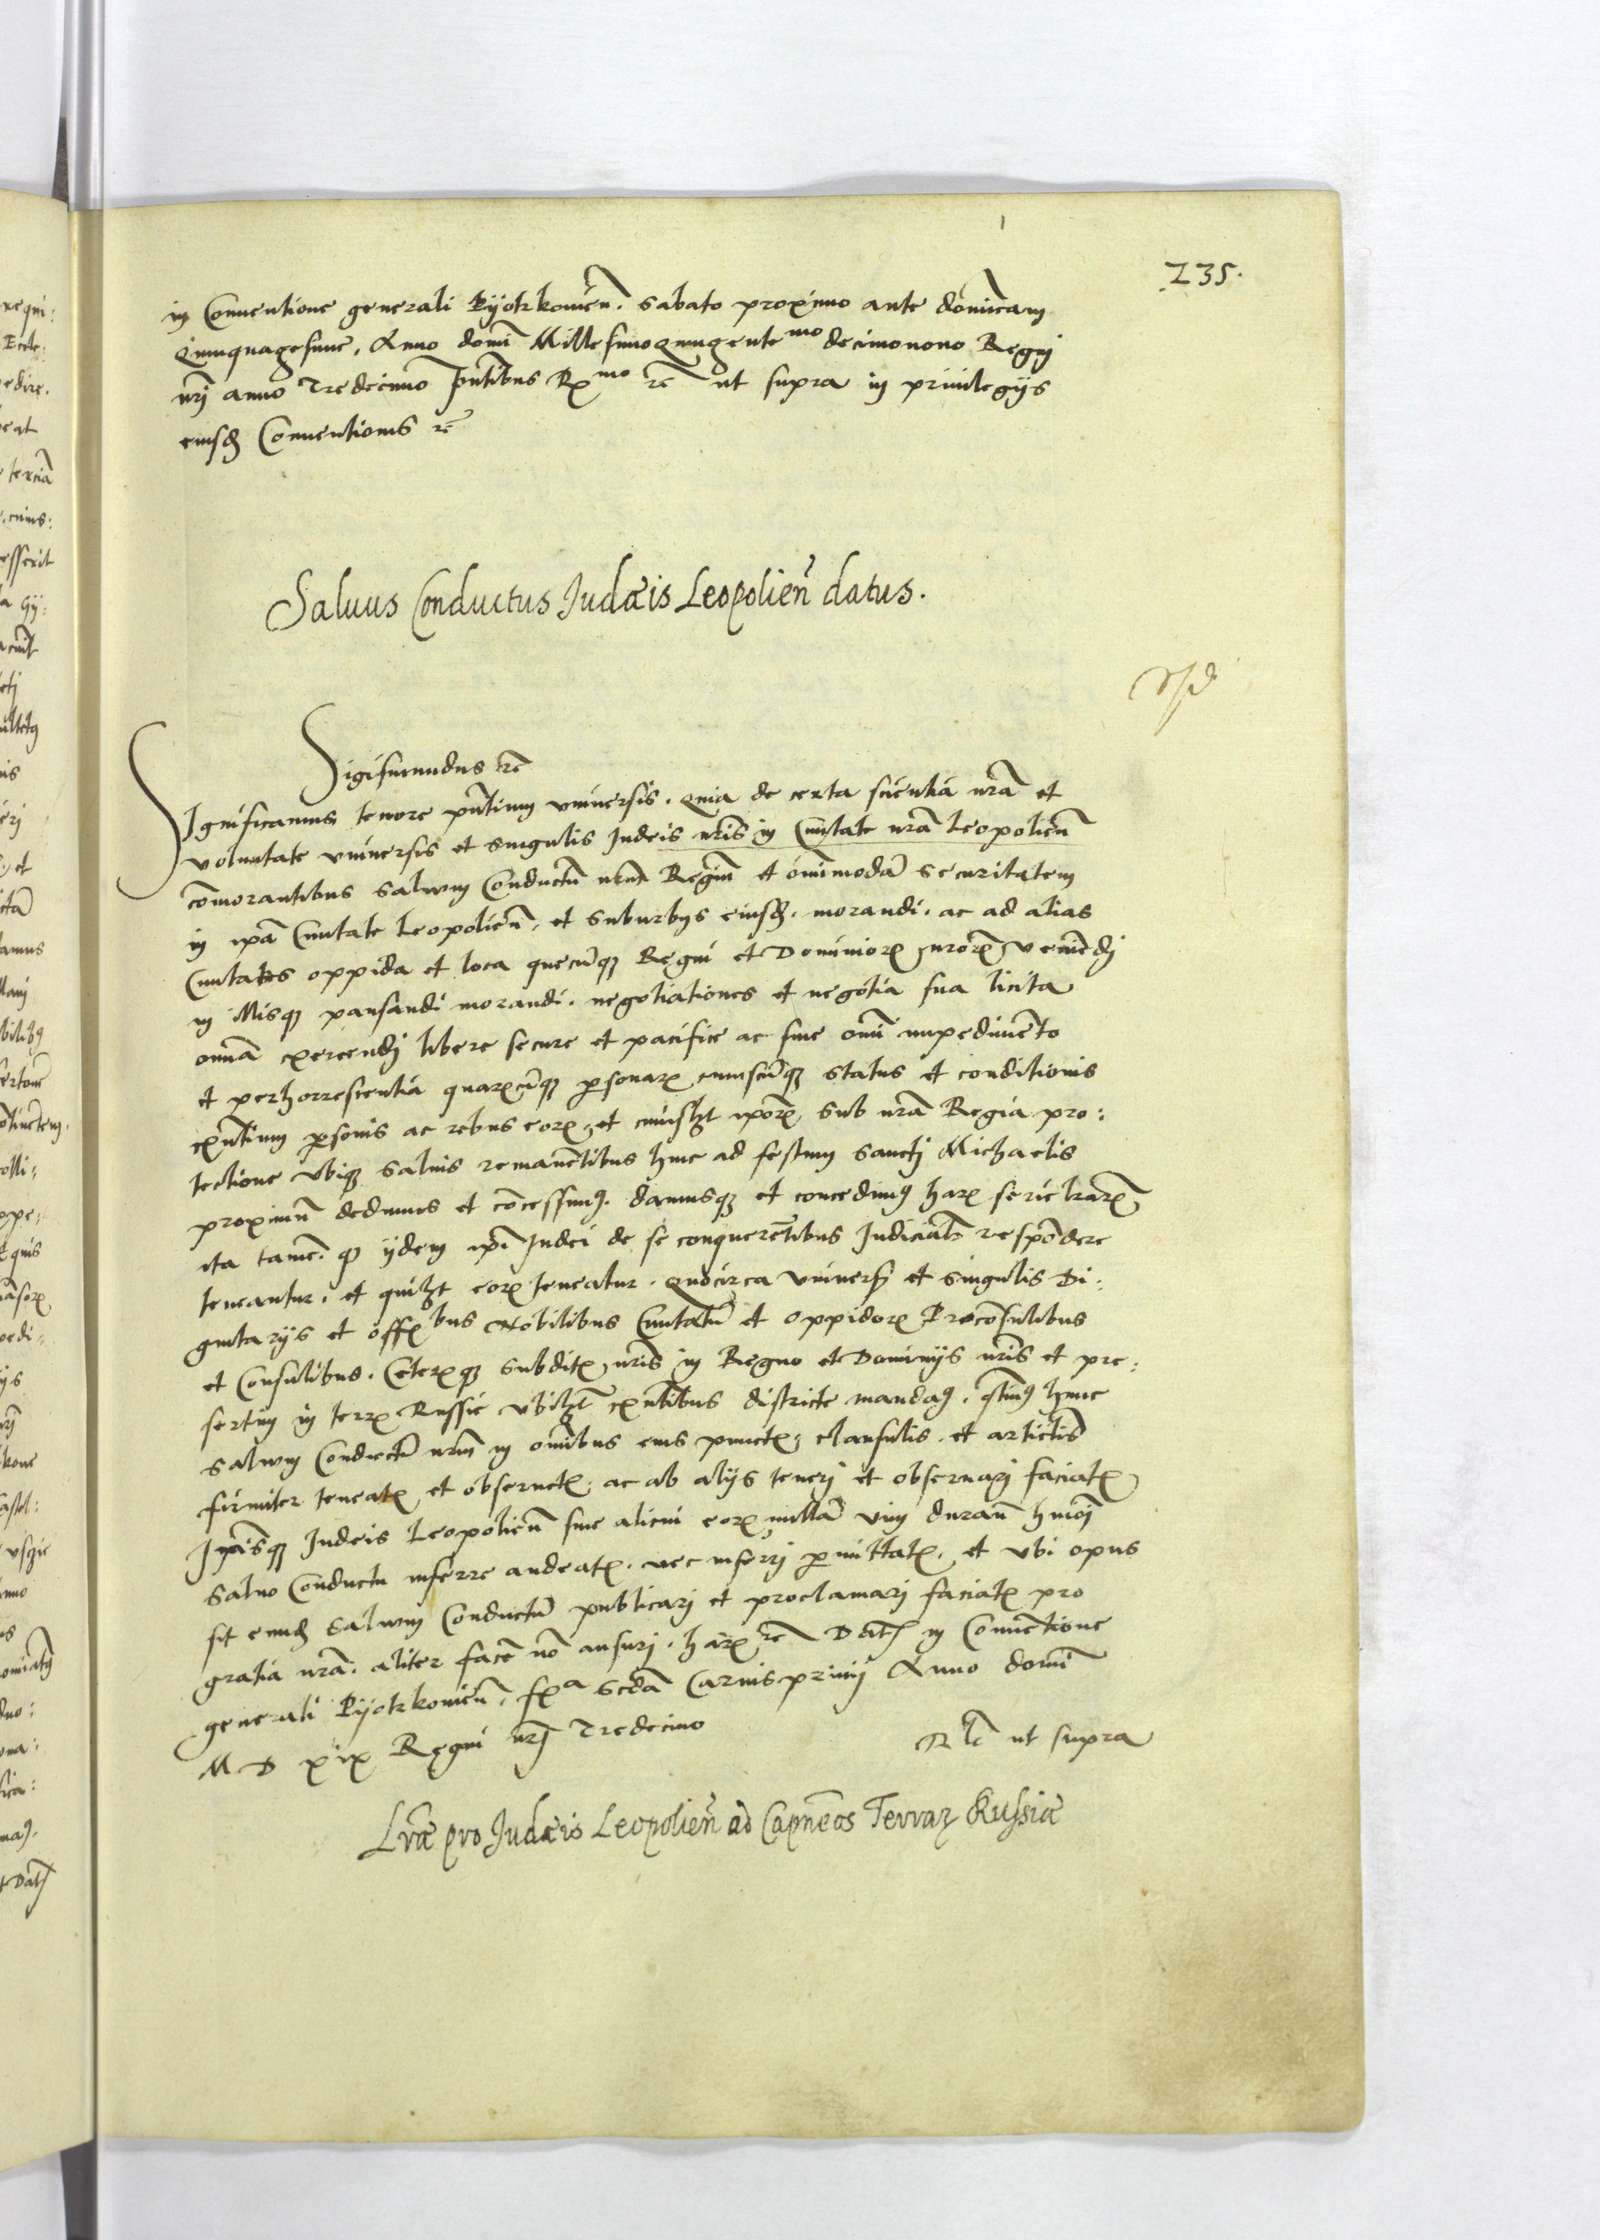 235.
in Conuentione generali Pyotrkouien̄. Sabato proximo ante dominicam
Quinquagesime, Anno domi Millesimo quingente^mo decimonono Regnj
nr̄j anno Tredecimo pn̄tibus R^mo rc̄ ut supra in priuilegijs
eiusd Conuentionis rc̄
Saluus Conductus Judæis Leopolien̄ datus.
Sigismundus rc̄
Significamus tenore pn̄tium vniuersis. Quia de certa scientia nr̄a et
voluntate vniuersis et singulis Judeis nr̄is in Ciuitate nr̄a Leopolien̄
com̄orantibus saluum Conductū nr̄um Regiū et om̄imodā securitatem
in ip̄a Ciuitate Leopolien̄, et suburbijs eiusd. morandi. ac ad alias
Ciuitates oppida et loca quecūq Regni et Dominior nror veniēdj
in illisq pausandi morandi. negotiationes et negotia sua licita
omnia exercendj libere secure et pacifice ac sine om̄i impedimēto
et perhorrescentia quarcūq psonar cuiuscūq status et conditionis
exn̄tium psonis ac rebus eor, et cuiuslʒt ip̄or sub nr̄a Regia pro:
tectione vbiq saluis remanētibus hinc ad festum Sanctj Michaelis
proximū dedimus et cōcessimꝰ. damusq et concedimꝰ har serie lrar
ita tamē. q ijdem ip̄i Judei de se conquerētibus Judicialr respōdere
teneantur. et quilʒt eor teneatur. Quocirca vniuers et singulis Di:
gnitarijs et off bus Nobilibus Ciuitatū et oppidor Procōsulibus
et Consulibus. Ceterq subdit nr̄is in Regno et Dominijs nr̄is et pre:
sertim in terr Russie vbilʒt exn̄tibus districte mandaꝰ. qtinꝰ hunc
saluum Conductū nr̄um in om̄ibus eius punct, clausulis. et articlis
firmiter teneat et obseruet. ac ab alijs tenerj et obseruarj faciat
Ip̄isq Judeis Leopolien̄ siue alicui eor nullā vim duran̄ hmōi
Saluo Conductu inferre audeat. nec inferrj pmittat. et vbi opus
sit eund saluum Conductū publicarj et proclamarj faciat pro
gratia nr̄a. aliter facē nō ausurj. har rc̄ Dat in Conuētione
generali Pyotrkouien̄. f^a Scd̄a Carnispriuij Anno domi
M D xix Regni nr̄j Tredecimo
Rlc̄ ut supra
Lr̄æ pro Judæis Leopolien̄ ad Capn̄eos Terrar Russiæ